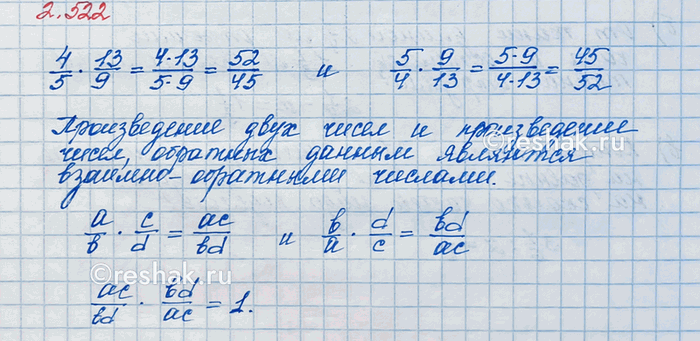 2.522
4/5 · 13/9 = 4·13/5·9 = 52/45 и 5/4 · 9/13 = 5·9/4·13 = 45/52
Произведение двух чисел и произведение
чисел, обратных данным являются
взаимно-обратными числами.
a/b · c/d = ac/bd и b/a · d/c = bd/ac
ac/bd · bd/ac = 1.
©reshak.ru
©reshak.ru
©reshak.ru